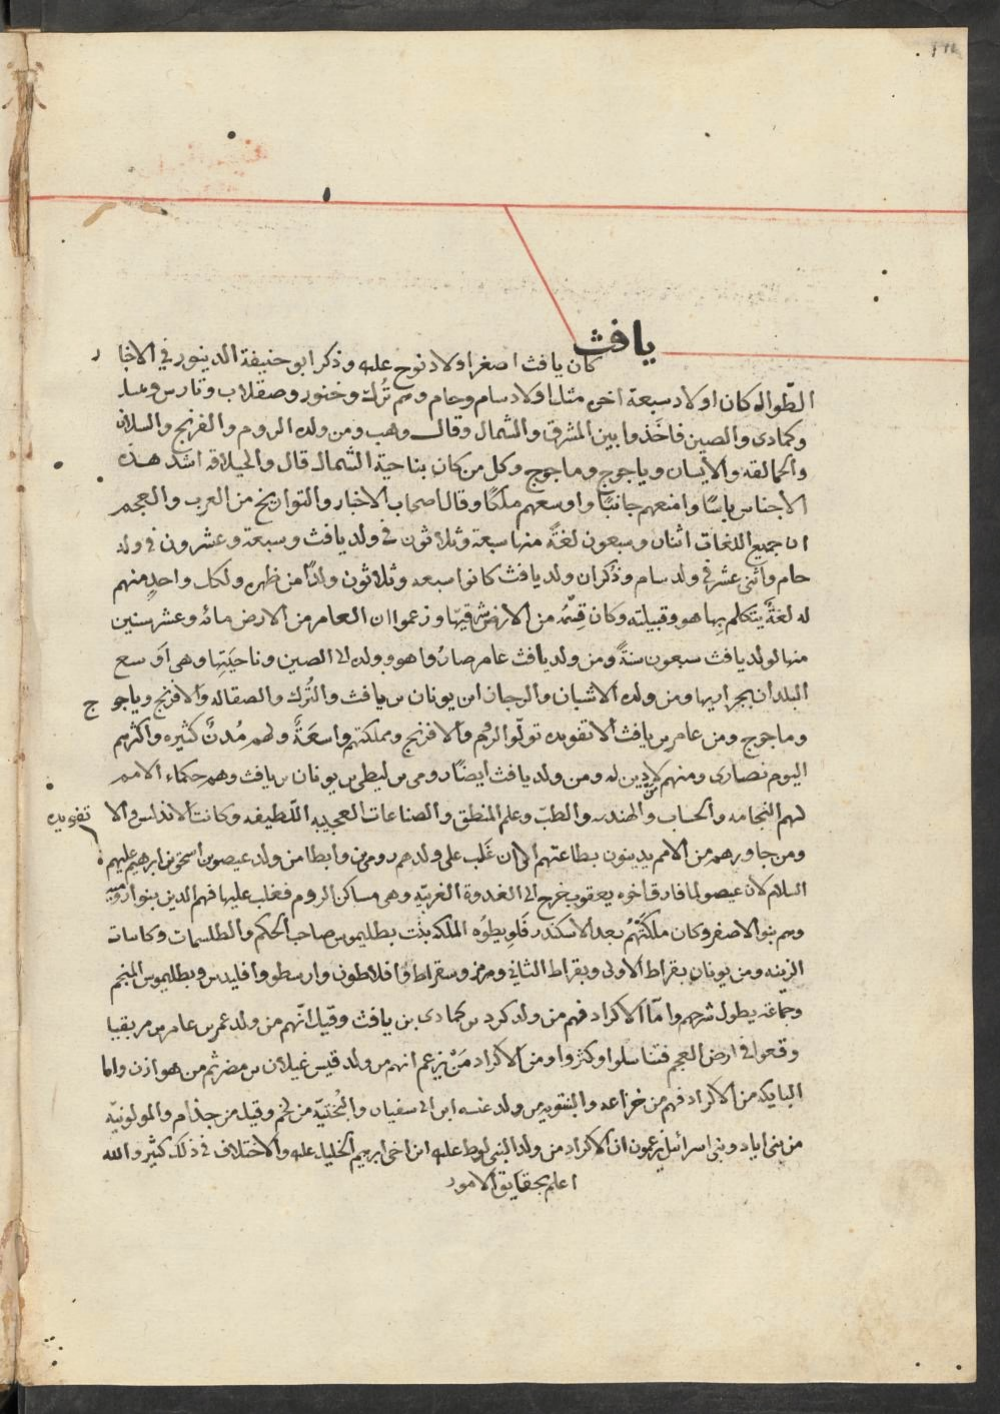 يافث
كان يافث اصغر اولاد نوح عليه وذكر ابو حنيفة الدينوري في الاخبار
الطّوال كان اولاد سبعة اخرى مثل اولاد سام وحام وهم تُرك وخنور وصقلاب وتارس
وكمادى والصين فاخذوا ما بين المشرق والشمال وقال وهب ومن ولده الروم والفرنج والسلان
والجمالقه والأبسان وياجوج وماجوج وكل من كان بناحية الشمال قال والجيلاقه اشد هذه
الاجناس باسًا وامنعهم جانبًا واوسعهم ملكًا وقال اصحاب الاخبار والتواريخ من العرب والعجم
ان جميع اللغات اثنان وسبعون لغةً منها سبعة وثلاثون في ولد يافث وسبعة وعشرون في ولد
حام واثنى عشر في ولد سام وذُكران ولد يافث كانوا سبعه وثلاثون ولدًا من ظهره ولكل واحدٍ منهم
له لغةً يتكلم بها هو وقبيلته وكان قِسْمُه من الارض شرقيّها وزعموا ان العامر من الارض مائه وعشر سنين
منها لولد يافث سبعون سنةً ومن ولد يافث عامر صارُوا هو وولده الى الصين وناحيَتِها وهى اوسع
البلدان بحرابها ومن ولده الاشبان والرجان ابن يونان بن يافث والتُرك والصقاله والافرنج وياجوج
وماجوج ومن عامر بن يافث الانقويده تولّوا الرُّوم والافرنج ومملكتهم واسعَةً ولهم مُدنٌ كثيره واكثرهم
اليوم نصارى ومنهم من لا دين له ومن ولد يافث ايضًا رومى بن ليطى بن يونان بن يافث وهم حكماء الامم
لهم النجامه والحساب والهندسه والطبّ وعلم المنطق والصناعات العجيبه اللّطيفه وكانت الاندلس والا نقويده
ومن جاورهم من الامم يدينون بطاعتهم الى ان غَلب على ولدهم رومى بن وابطا من ولد عيصو بن اسحق بن ابرهيم عليهم
السلام لان عيصو لما فارق اخوه يعقوب خرج الى الغدوة الغربيّه وهى مساكن الروم فغلب عليها فهم الدين بنوا روميّه
وهم بنو الاصفر وكان ملكَتْهُم بعد الاسكندر قَلوبطرُه الملكه بنت بطليموس صاحب الحكم والطلسمات وكاسات
الزينه ومن يونان بقراط الاولى وبقراط الثاني وهرمز وسقراط وافلاطون وارسطو واقليدس وبطليموس المنجم
وجماعة يطول شرحهم وامّا الاكراد فهم من ولد كرد بن كمادى بن يافث وقيل انّهم من ولد عمر بن عامر بن مريقيا
وقعوا في ارض العجم فتناسلوا وكثروا ومن الاكراد مَنْ يزعم انهم من ولد قيس غيلان بن مضر ثم من هوازن واما
البابكه من الاكراد فهم من خزاعه والبنقويه من ولد عنبسه ابن ابي سفيان والبُختيّه من لخم وقيل من جذام والمولونيّه
من بنى اياد وبنى اسرائيل يزعمون ان الاكراد من ولد النبى لوط عليه ابن اخى ابرهيم الخليل عليه والاختلاف في ذلك كثير والله
اعلم بحقايق الامور